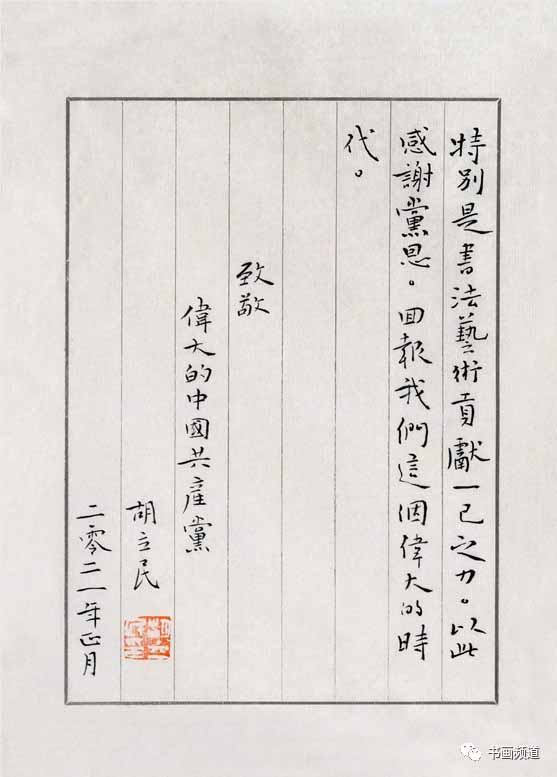 特别是書法藝術貢獻一己之力。以此
感謝黨恩。回報我們這個偉大的時
代。
致敬
偉大的中國共産黨
胡立民
二零二一年正月
书画频道